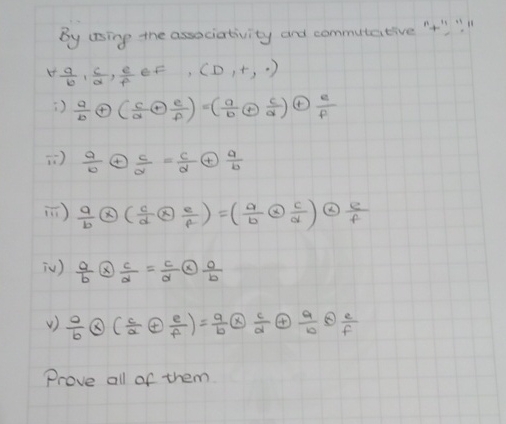 By using the associativity and commutative "+", "."
∀ a/b, c/d, e/f ∈ F , (D, +, ·)
i) a/b ⊕ (c/d ⊕ e/f) = (a/b ⊕ c/d) ⊕ e/f
ii) a/b ⊕ c/d = c/d ⊕ a/b
iii) a/b ⊗ (c/d ⊗ e/f) = (a/b ⊗ c/d) ⊗ e/f
iv) a/b ⊗ c/d = c/d ⊗ a/b
v) a/b ⊗ (c/d ⊕ e/f) = a/b ⊗ c/d ⊕ a/b ⊗ e/f
Prove all of them.